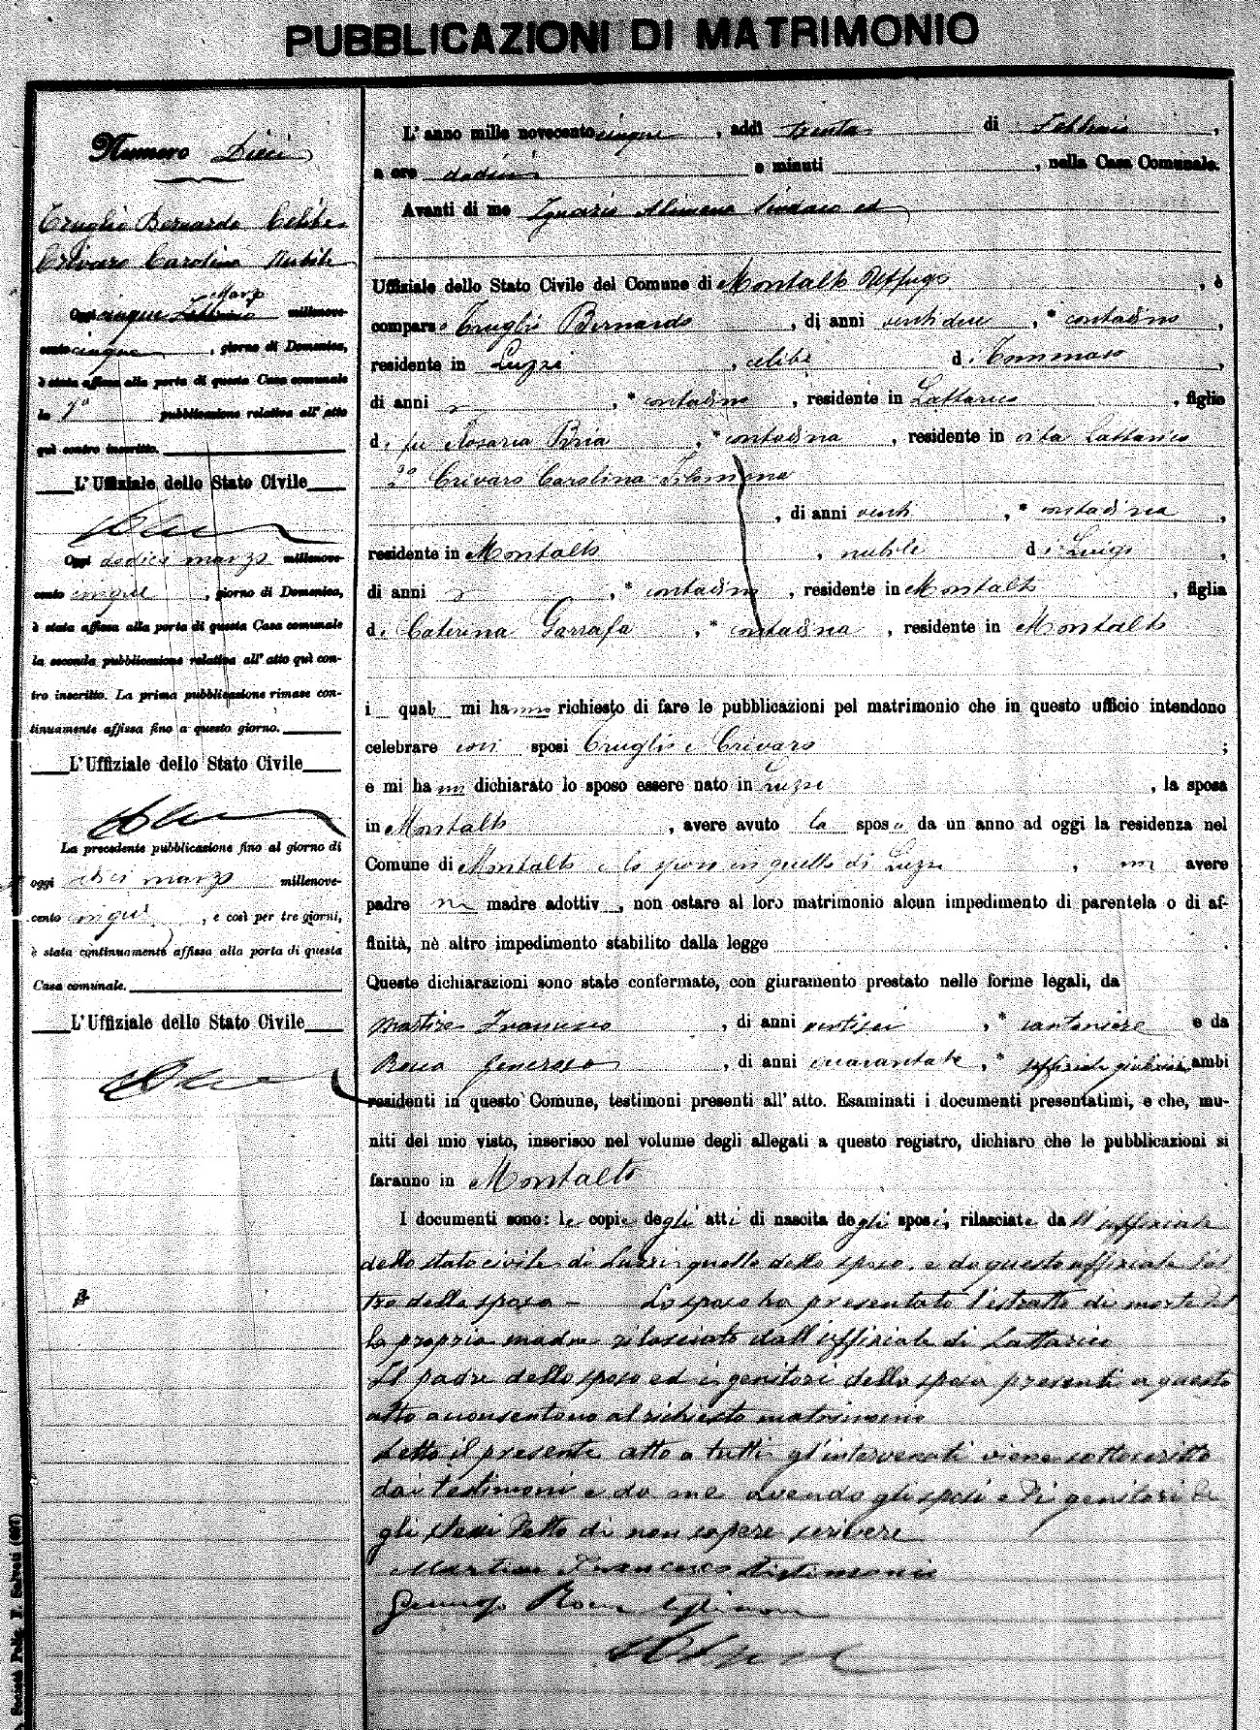 PUBBLICAZIONI DI MATRIMONIO
Numero Dieci
Truglio Bernardo Celibe
Crivaro Carolina Nubile
Marzo
Oggi cinque Febbraio millenove-
cento cinque, giorno di Domenica,
è stata affissa alla porta di questa Casa comunale
la 1a pubblicazione relativa all'atto
quì contro inscritto.
L'Uffiziale dello Stato Civile
Oggi dodici marzo millenove-
cento cinque, giorno di Domenica,
è stata affissa alla porta di questa Casa comunale
la seconda pubblicazione relativa all'atto quì con-
tro inscritto. La prima pubblicazione rimase con-
tinuamente affissa fino a questo giorno.
L'Uffiziale dello Stato Civile
La precedente pubblicazione fino al giorno di
oggi marzo millenove-
cento cinque, e così per tre giorni,
è stata continuamente affissa alla porta di questa
Casa comunale.
L'Uffiziale dello Stato Civile
L'anno mille novecento cinque, addì trenta di Febbraio,
a ore dodici e minuti , nella Casa Comunale.
Avanti di me Ignazio Alimena Sindaco ed
Uffiziale dello Stato Civile del Comune di Montalto Uffugo, è
compars o Truglio Bernardo, di anni ventidue, * contadino,
residente in Luzzi, celibe di Tommaso,
di anni , * contadino, residente in Lattarico, figlio
di fu Rosaria Bria, * contadina, residente in vita Lattarico
2o Crivaro Carolina Filomena
, di anni venti, * contadina,
residente in Montalto, nubile di Luigi,
di anni , * contadino, residente in Montalto, figlia
di Caterina Garrafa, * contadina, residente in Montalto
i quali mi hanno richiesto di fare le pubblicazioni pel matrimonio che in questo ufficio intendono
celebrare essi sposi Truglio e Crivaro;
e mi hanno dichiarato lo sposo essere nato in Luzzi, la sposa
in Montalto, avere avuto la sposa da un anno ad oggi la residenza nel
Comune di Montalto e lo sposo in quello di Luzzi, non avere
padre nè madre adottiv , non ostare al loro matrimonio alcun impedimento di parentela o di af-
finità, nè altro impedimento stabilito dalla legge
Queste dichiarazioni sono state confermate, con giuramento prestato nelle forme legali, da
Martire Francesco, di anni ventisei, * cantoniere e da
Rocco Generoso, di anni quarantatre, * ambi
residenti in questo Comune, testimoni presenti all'atto. Esaminati i documenti presentatimi, e che, mu-
niti del mio visto, inserisco nel volume degli allegati a questo registro, dichiaro che le pubblicazioni si
faranno in Montalto
I documenti sono: le copie degli atti di nascita degli sposi, rilasciate dall'uffiziale
dello stato civile di Luzzi quella dello sposo, e da questo uffiziale l'al
tro della sposa - Lo sposo ha presentato l'estratto di morte del
la propria madre rilasciato dall'uffiziale di Lattarico
Il padre dello sposo ed i genitori della sposa presenti a questo
atto acconsentono al richiesto matrimonio
Letto il presente atto a tutti gl'intervenuti viene sottoscritto
dai testimoni e da me avendo gli sposi e di genitori de
gli stessi detto di non sapere scrivere
Martire Francesco testimonio
Generoso Rocco testimone